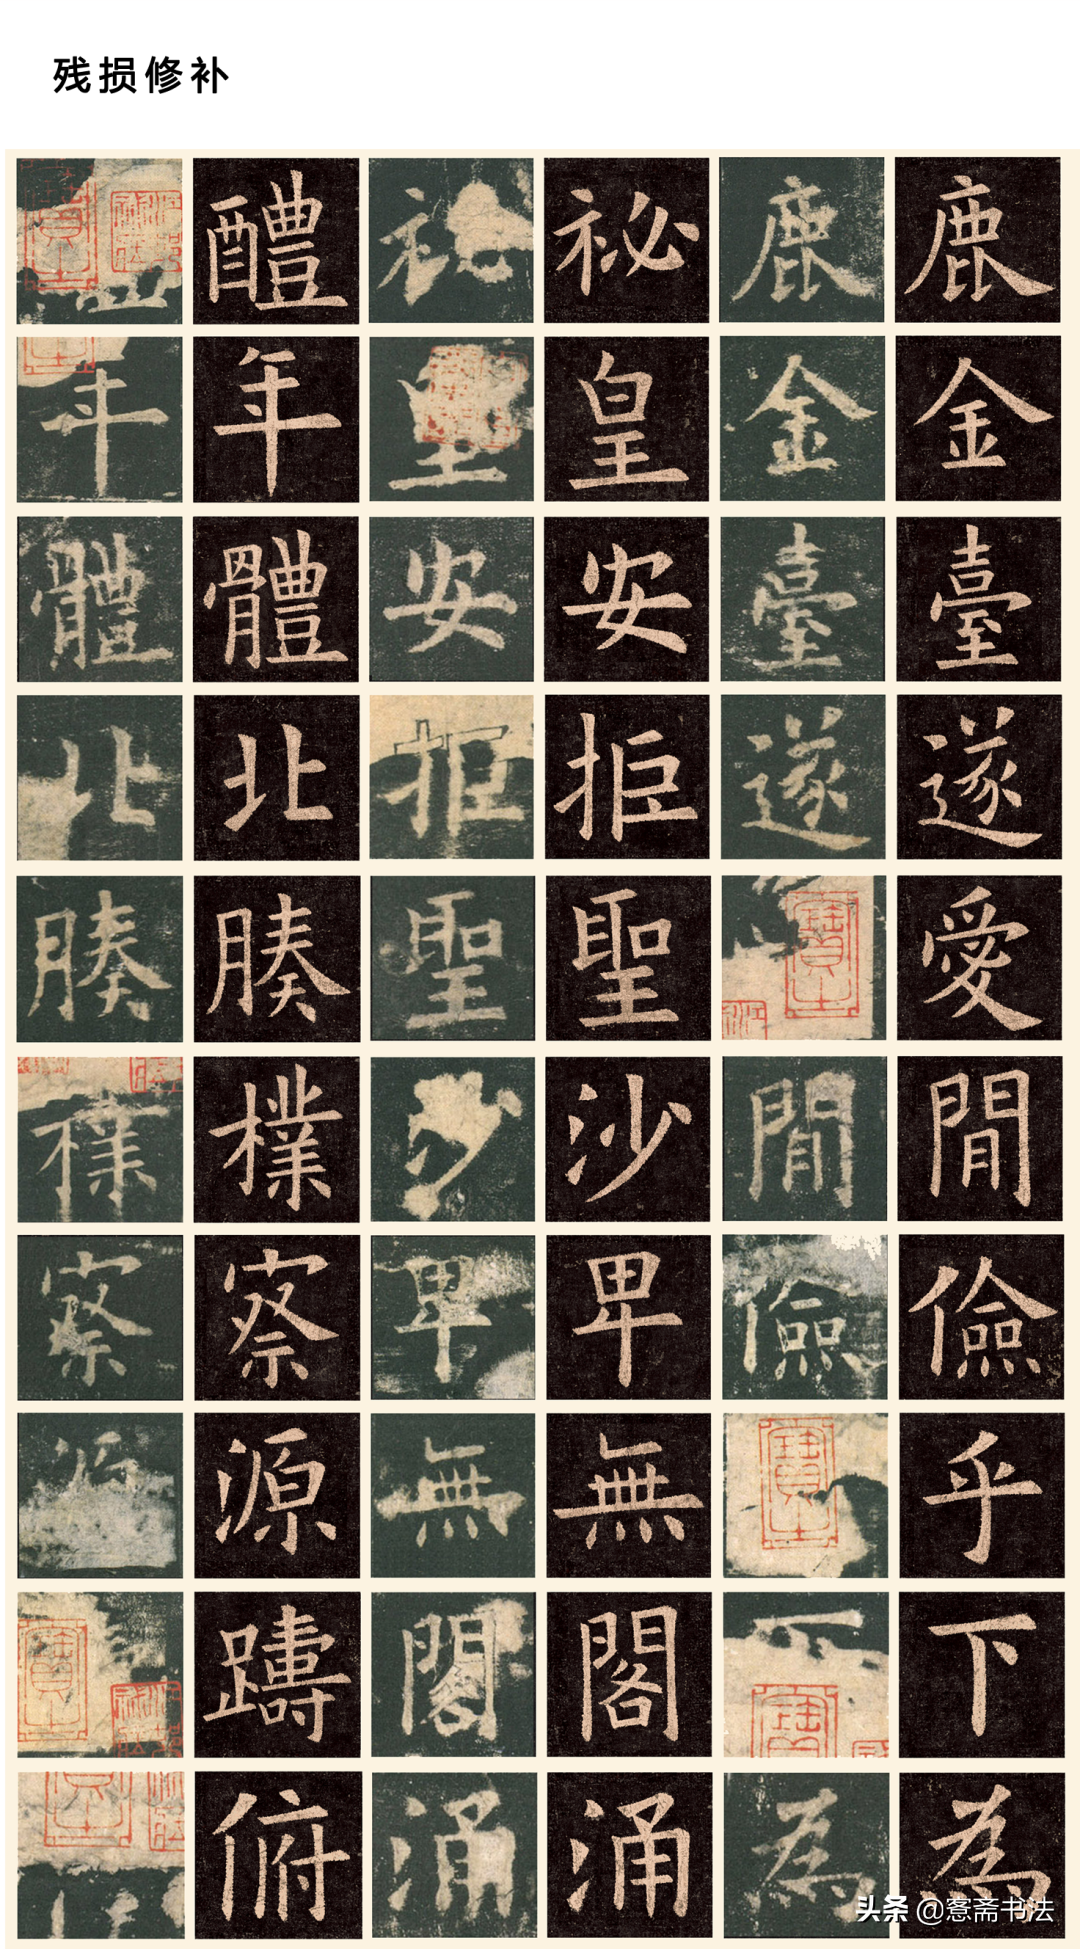 残损修补
醴 祕 鹿
年 年 皇 皇 金 金
體 體 安 安 臺 臺
北 北 拒 拒 遂 遂
腠 腠 聖 聖 愛
樸 樸 沙 沙 閒 閒
察 察 卑 卑 儉 儉
源 無 無 乎
躊 閣 閣 下
俯 涌 涌 為 為
头条 @愙斋书法